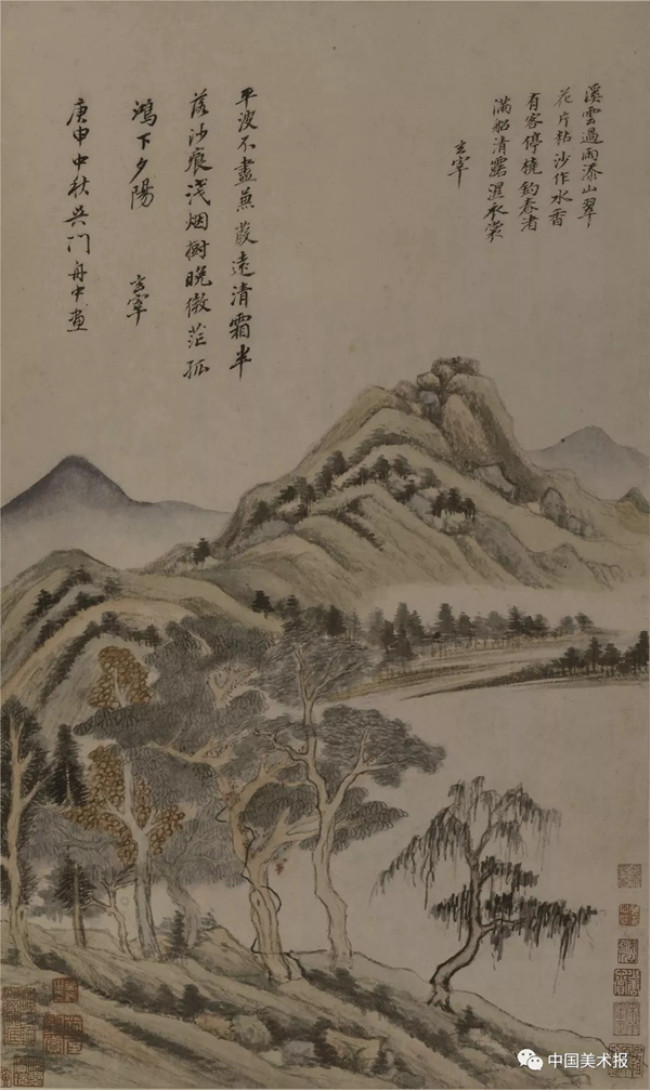 溪雲過雨添山翠
花片粘沙作水香
有客停橈釣春渚
滿船清露濕衣裳
玄宰
平波不盡蒹葭遠清霜半
落沙痕淺烟樹晚微茫孤
鴻下夕陽
玄宰
庚申中秋吳門舟中畫
中国美术报